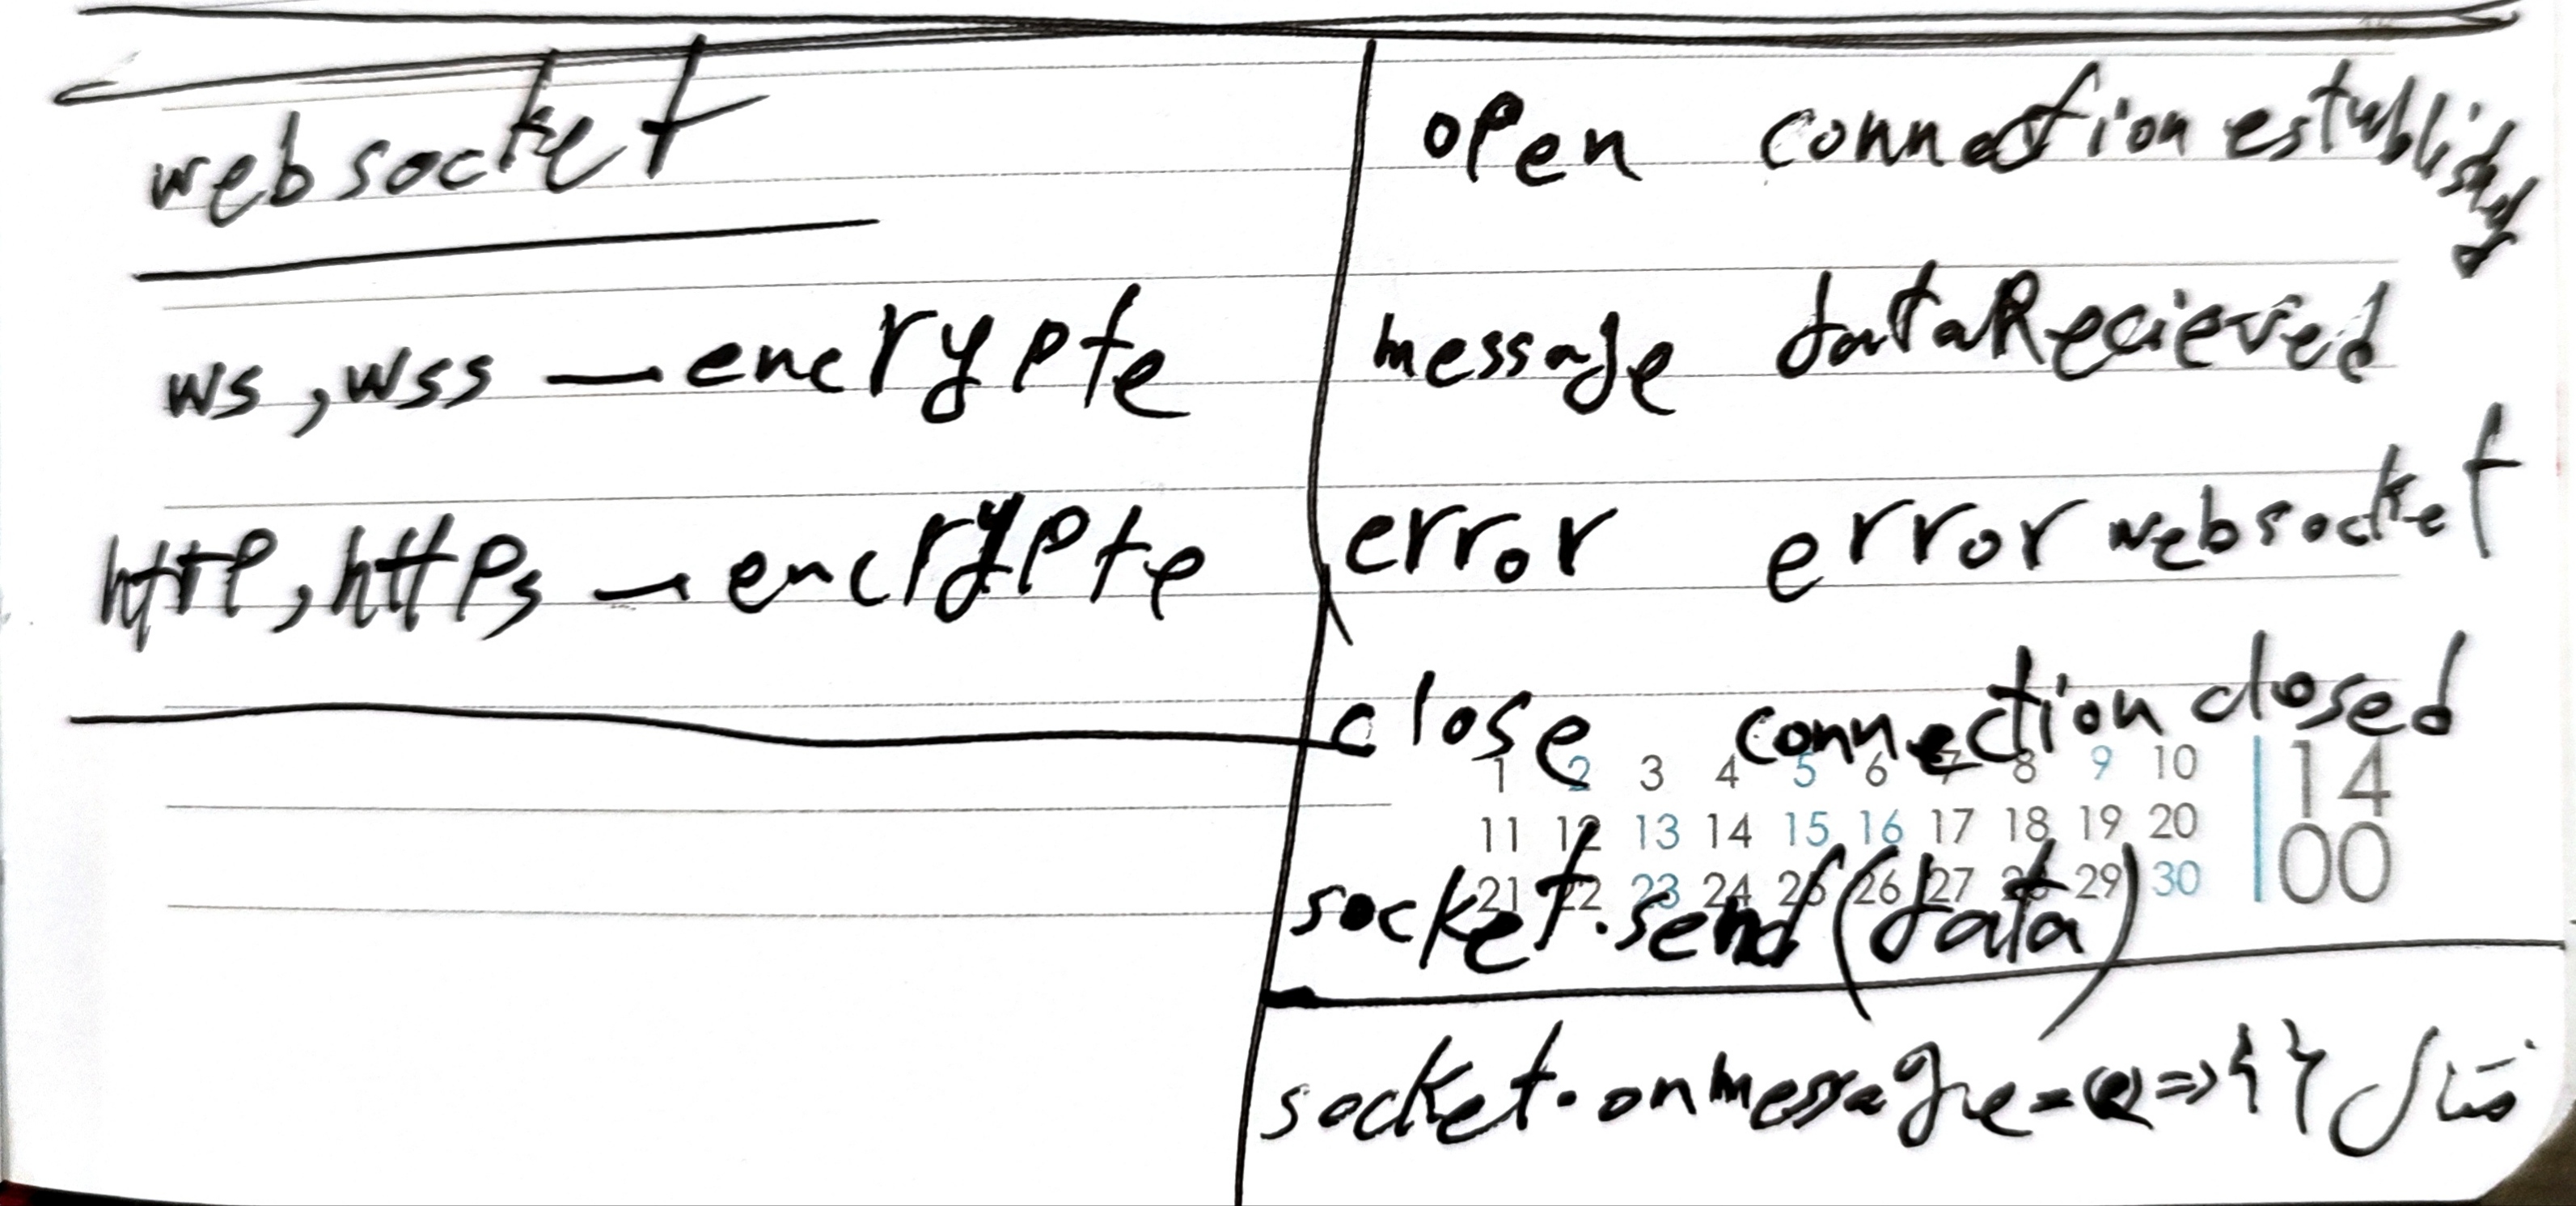 websocket
ws, wss — encrypte
http, https — encrypte
open connection established
message dataRecieved
error error websocket
close connection closed
1 2 3 4 5 6 7 8 9 10
11 12 13 14 15 16 17 18 19 20
21 22 23 24 25 26 27 28 29 30
1400
socket.send(data)
socket.onmessage=(e)=>{} مثال